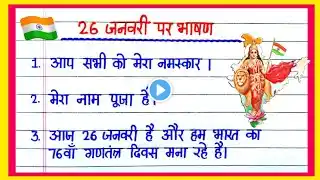 26 जनवरी पर भाषण
1. आप सभी को मेरा नमस्कार ।
2. मेरा नाम पूजा है।
3. आज 26 जनवरी है और हम भारत का
76वाँ गणतंत्र दिवस मना रहे है।